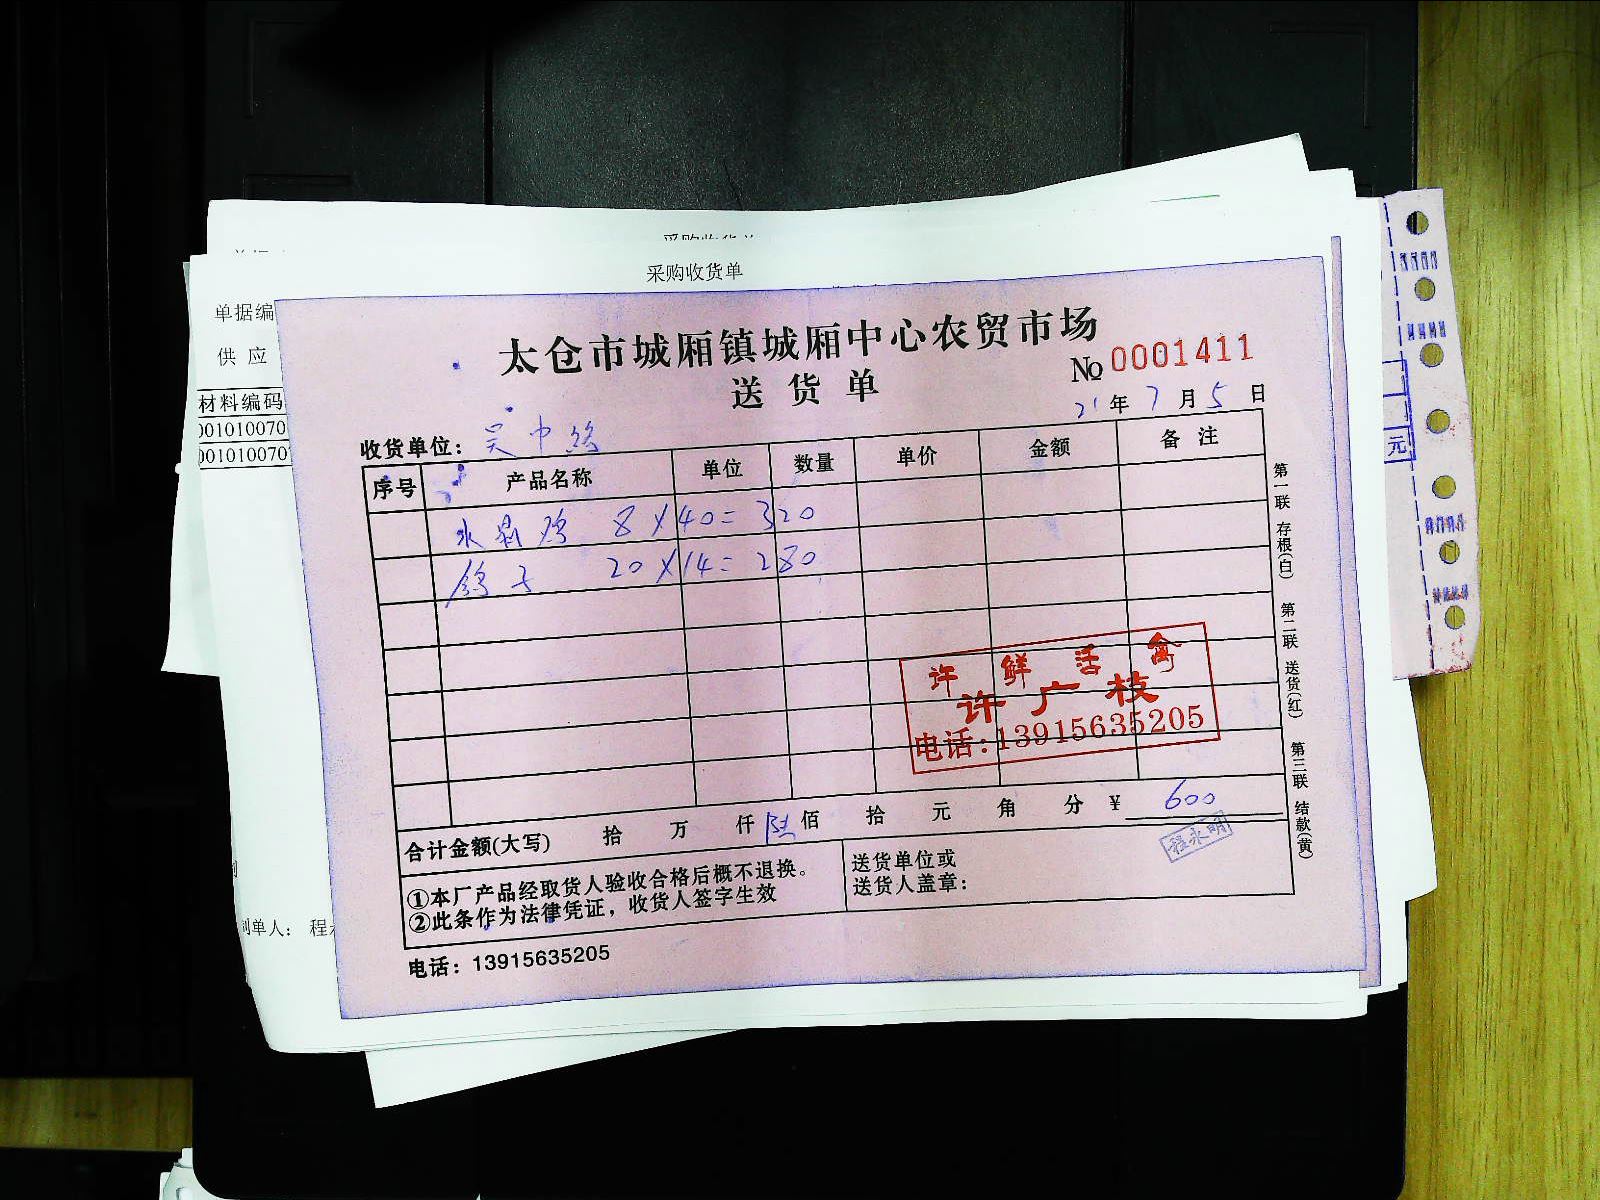 采购收货单
采购收货单
单据编
供 应
材料编码
001010070
001010070
制单人： 程
太仓市城厢镇城厢中心农贸市场
送货单
№ 0001411
21 年 7 月 5 日
收货单位：吴中
序号 产品名称 单位 数量 单价 金额 备注
水晶鸡 8×40=320
鸽子 20×14=280
许鲜活禽
许广枝
电话:13915635205
合计金额(大写) 拾 万 仟 陆 佰 拾 元 角 分 ¥ 600
程永明
①本厂产品经取货人验收合格后概不退换。
②此条作为法律凭证，收货人签字生效
送货单位或
送货人盖章：
电话：13915635205
第一联 存根(白)
第二联 送货(红)
第三联 结款(黄)
元